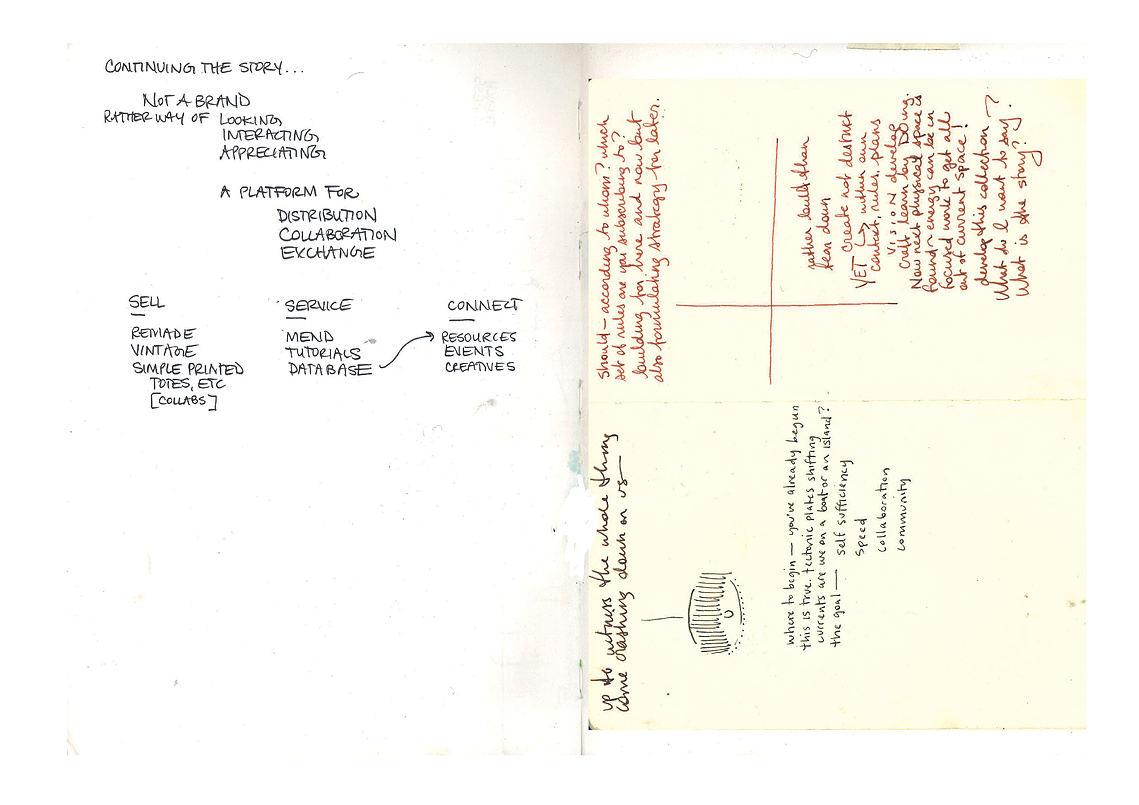 CONTINUING THE STORY...
NOT A BRAND
RATHER WAY OF LOOKING
INTERACTING
APPRECIATING
A PLATFORM FOR
DISTRIBUTION
COLLABORATION
EXCHANGE
SELL
REMADE
VINTAGE
SIMPLE PRINTED
TOTES, ETC
[COLLABS]
SERVICE
MEND
TUTORIALS
DATABASE
CONNECT
RESOURCES
EVENTS
CREATIVES
should – according to whom? which
set of rules are you subscribing to?
building for here and now but
also formulating strategy for later.
rather built than
torn down
create not destruct
YET within own
context, rules, plans
VISION develop
craft, learn by DOing.
Now next physical space is
found ~ energy can be in
focused work to get all
out of current space!
develop this collection —
What do I want to say?
What is the story?
up to witness the whole thing
come crashing down on us —
where to begin — you've already begun
this is true. tectonic plates shifting
currents are we on a boat or an island?
the goal — self sufficiency
speed
collaboration
community